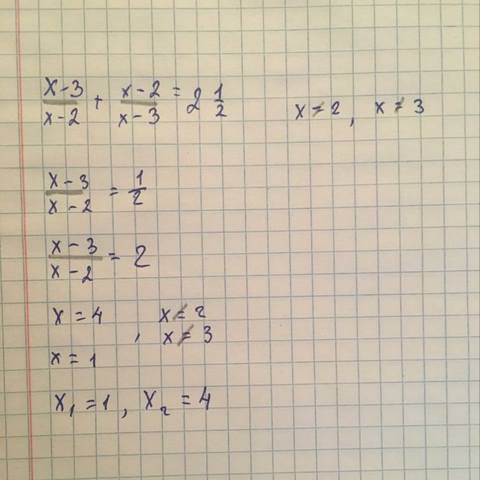 (x-3)/(x-2) + (x-2)/(x-3) = 2 1/2    x ≠ 2, x ≠ 3
(x-3)/(x-2) = 1/2
(x-3)/(x-2) = 2
x = 4, x ≠ 2
x = 1, x ≠ 3
x₁ = 1, x₂ = 4